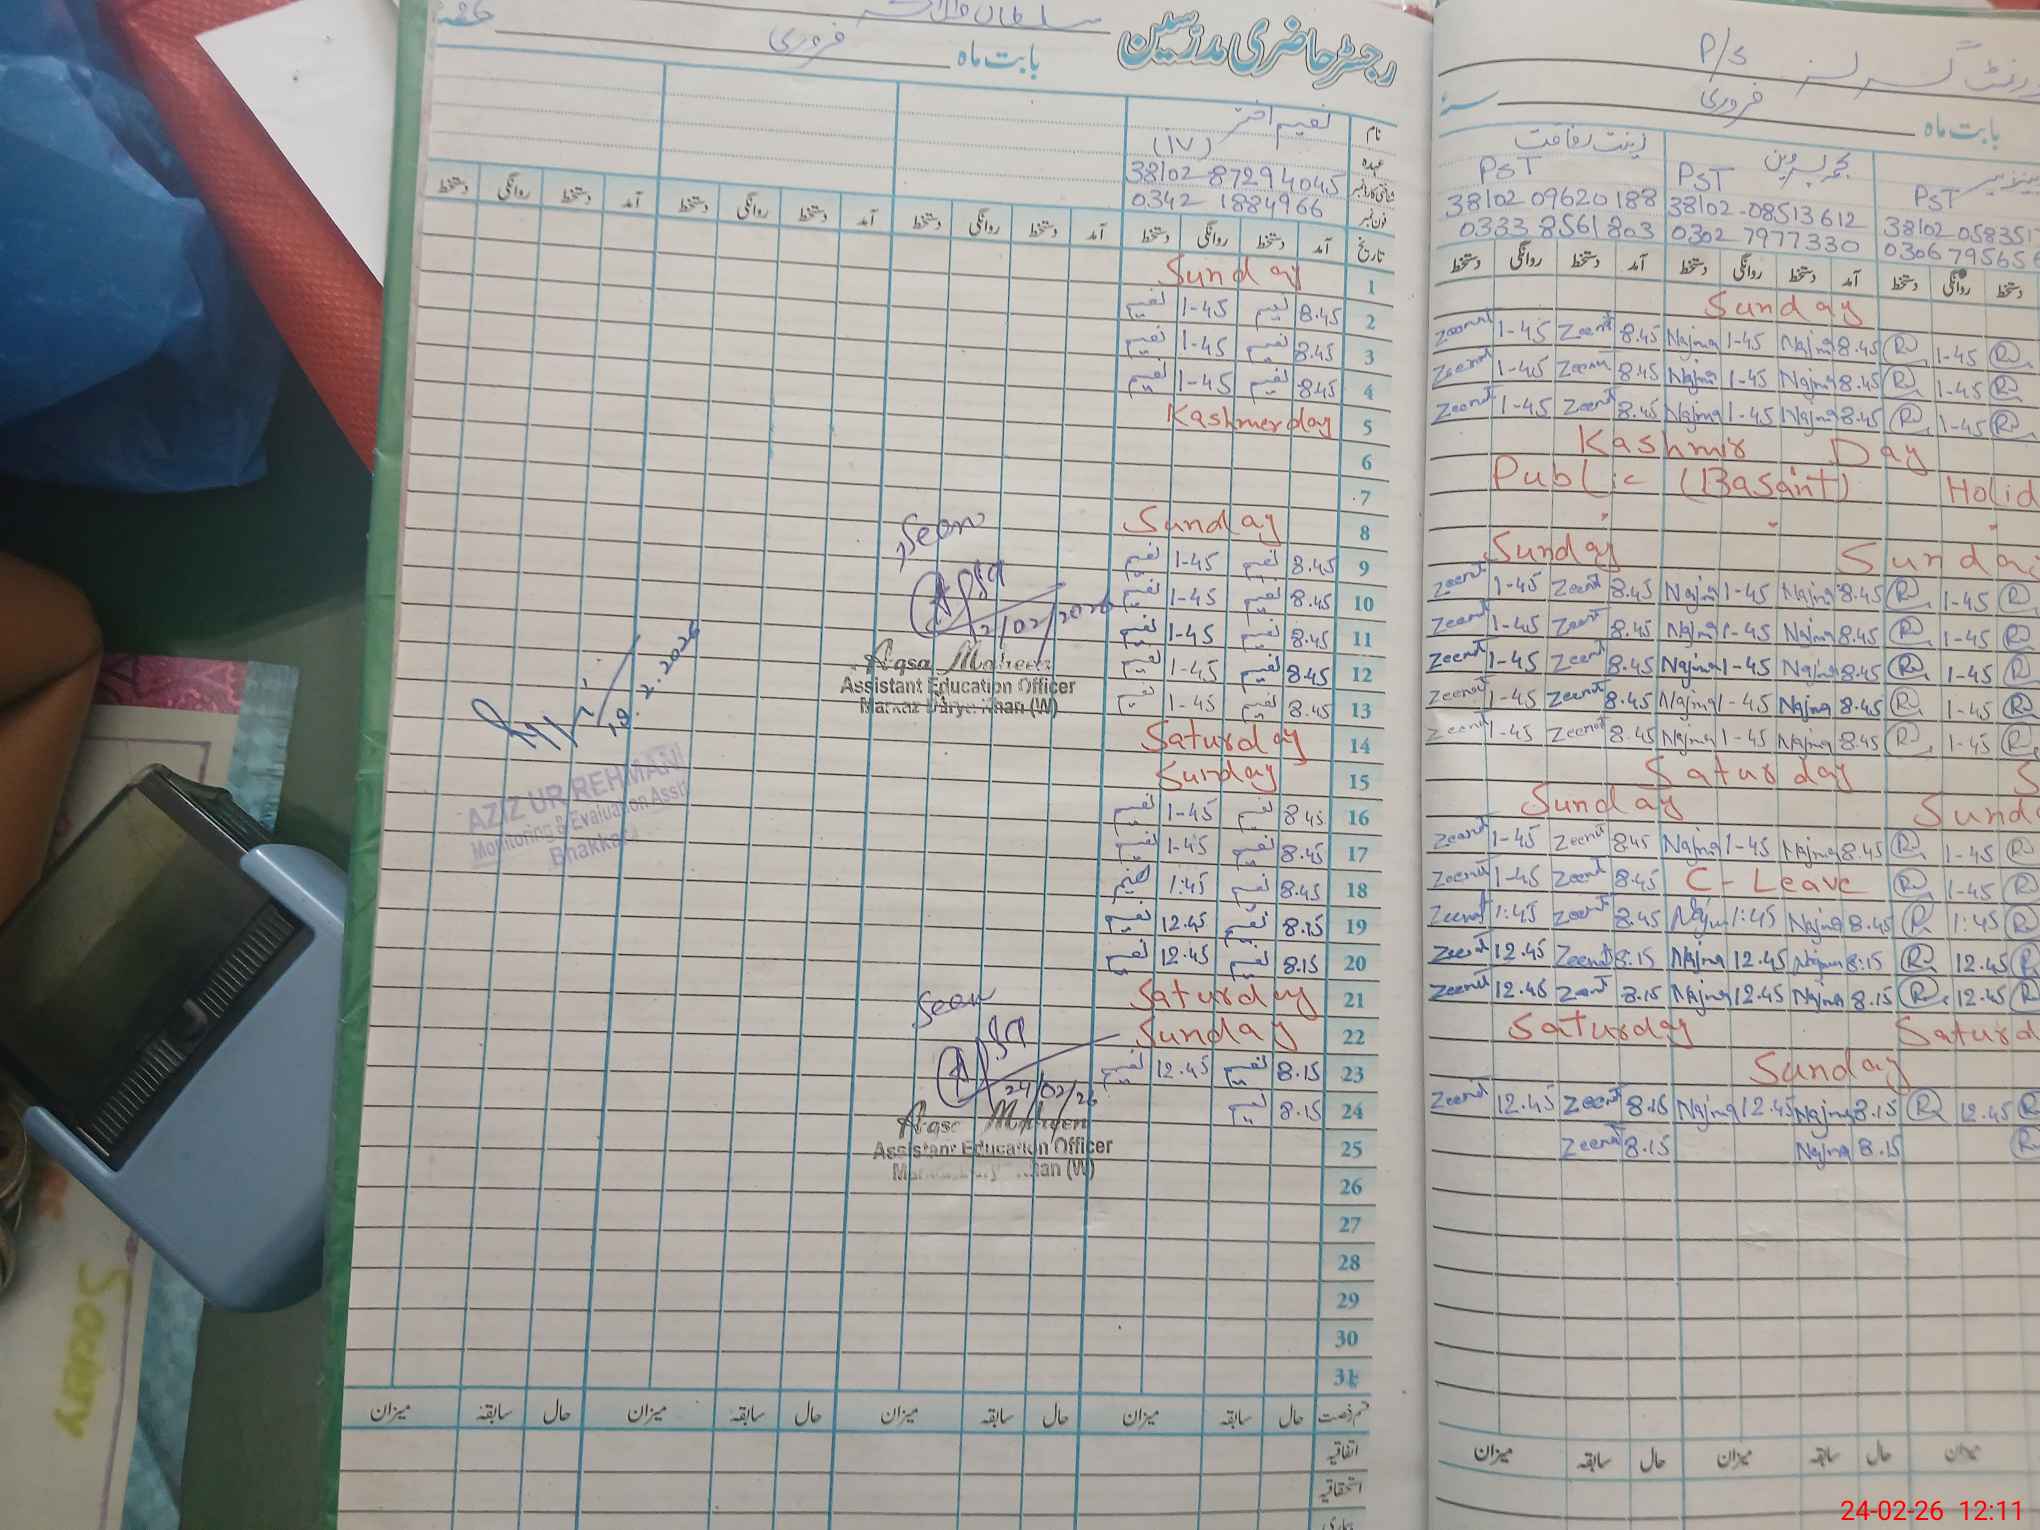 رجسٹر حاضری مدرسین
بابت ماہ فروری
نام
عہدہ (IV)
شناختی کارڈ نمبر 38102 87294045
فون نمبر 0342 1884966
تاریخ آمد دستخط روانگی دستخط آمد دستخط روانگی دستخط آمد دستخط روانگی دستخط آمد دستخط روانگی دستخط
1 Sunday
2 8.45 نعیم 1-45 نعیم
3 8.45 نعیم 1-45 نعیم
4 8.45 نعیم 1-45 نعیم
5 Kashmerday
6
7
8 Sunday
9 8.45 نعیم 1-45 نعیم
10 8.45 نعیم 1-45 نعیم
11 8.45 نعیم 1-45 نعیم
12 8.45 نعیم 1-45 نعیم
13 8.45 نعیم 1-45 نعیم
14 Saturday
15 Sunday
16 8.45 نعیم 1-45 نعیم
17 8.45 نعیم 1-45 نعیم
18 8.45 نعیم 1:45 نعیم
19 8.15 نعیم 12.45 نعیم
20 8.15 نعیم 12.45 نعیم
21 Saturday
22 Sunday
23 8.15 نعیم 12.45 نعیم
24 8.15 نعیم
25
26
27
28
29
30
31
Seen
12/02/2026
Aqsa Maheen
Assistant Education Officer
Markaz Darya Khan (W)
19.2.2026
AZIZ UR REHMAN
Monitoring & Evaluation Assit
Bhakkar
Seen
24/02/26
Aqsa Maheen
Assistant Education Officer
Khan (W)
قسم رخصت حال سابقہ میزان حال سابقہ میزان حال سابقہ میزان حال سابقہ میزان
اتفاقیہ
استحقاقیہ
بیماری
گرلز P/S
بابت ماہ فروری
زینت رفاقت
PST PST PST
38102 09620188 38102-08513612 38102 058351
0333 8561803 0302 7977330 0306 795656
دستخط روانگی دستخط آمد دستخط روانگی دستخط آمد دستخط روانگی دستخط
Sunday
Zeenat 1-45 Zeenat 8.45 Najma 1-45 Najma 8.45 R 1-45 R
Zeenat 1-45 Zeenat 8.45 Najma 1-45 Najma 8.45 R 1-45 R
Zeenat 1-45 Zeenat 8.45 Najma 1-45 Najma 8.45 R 1-45 R
Kashmir Day
Public (Basant) Holid
Sunday Sunday
Zeenat 1-45 Zeenat 8.45 Najma 1-45 Najma 8.45 R 1-45 R
Zeenat 1-45 Zeenat 8.45 Najma 1-45 Najma 8.45 R 1-45 R
Zeenat 1-45 Zeenat 8.45 Najma 1-45 Najma 8.45 R 1-45 R
Zeenat 1-45 Zeenat 8.45 Najma 1-45 Najma 8.45 R 1-45 R
Zeenat 1-45 Zeenat 8.45 Najma 1-45 Najma 8.45 R 1-45 R
Saturday S
Sunday Sund
Zeenat 1-45 Zeenat 8.45 Najma 1-45 Najma 8.45 R 1-45 R
Zeenat 1-45 Zeenat 8.45 C-Leave R 1-45 R
Zeenat 1:45 Zeenat 8.45 Najma 1:45 Najma 8.45 R 1:45 R
Zeenat 12.45 Zeenat 8.15 Najma 12.45 Najma 8.15 R 12.45 R
Zeenat 12.45 Zeenat 8.15 Najma 12.45 Najma 8.15 R 12.45 R
Saturday Saturd
Sunday
Zeenat 12.45 Zeenat 8.15 Najma 12.45 Najma 8.15 R 12.45 R
Zeenat 8.15 Najma 8.15 R
میزان سابقہ حال میزان سابقہ حال میزان
Sadery
24-02-26 12:11